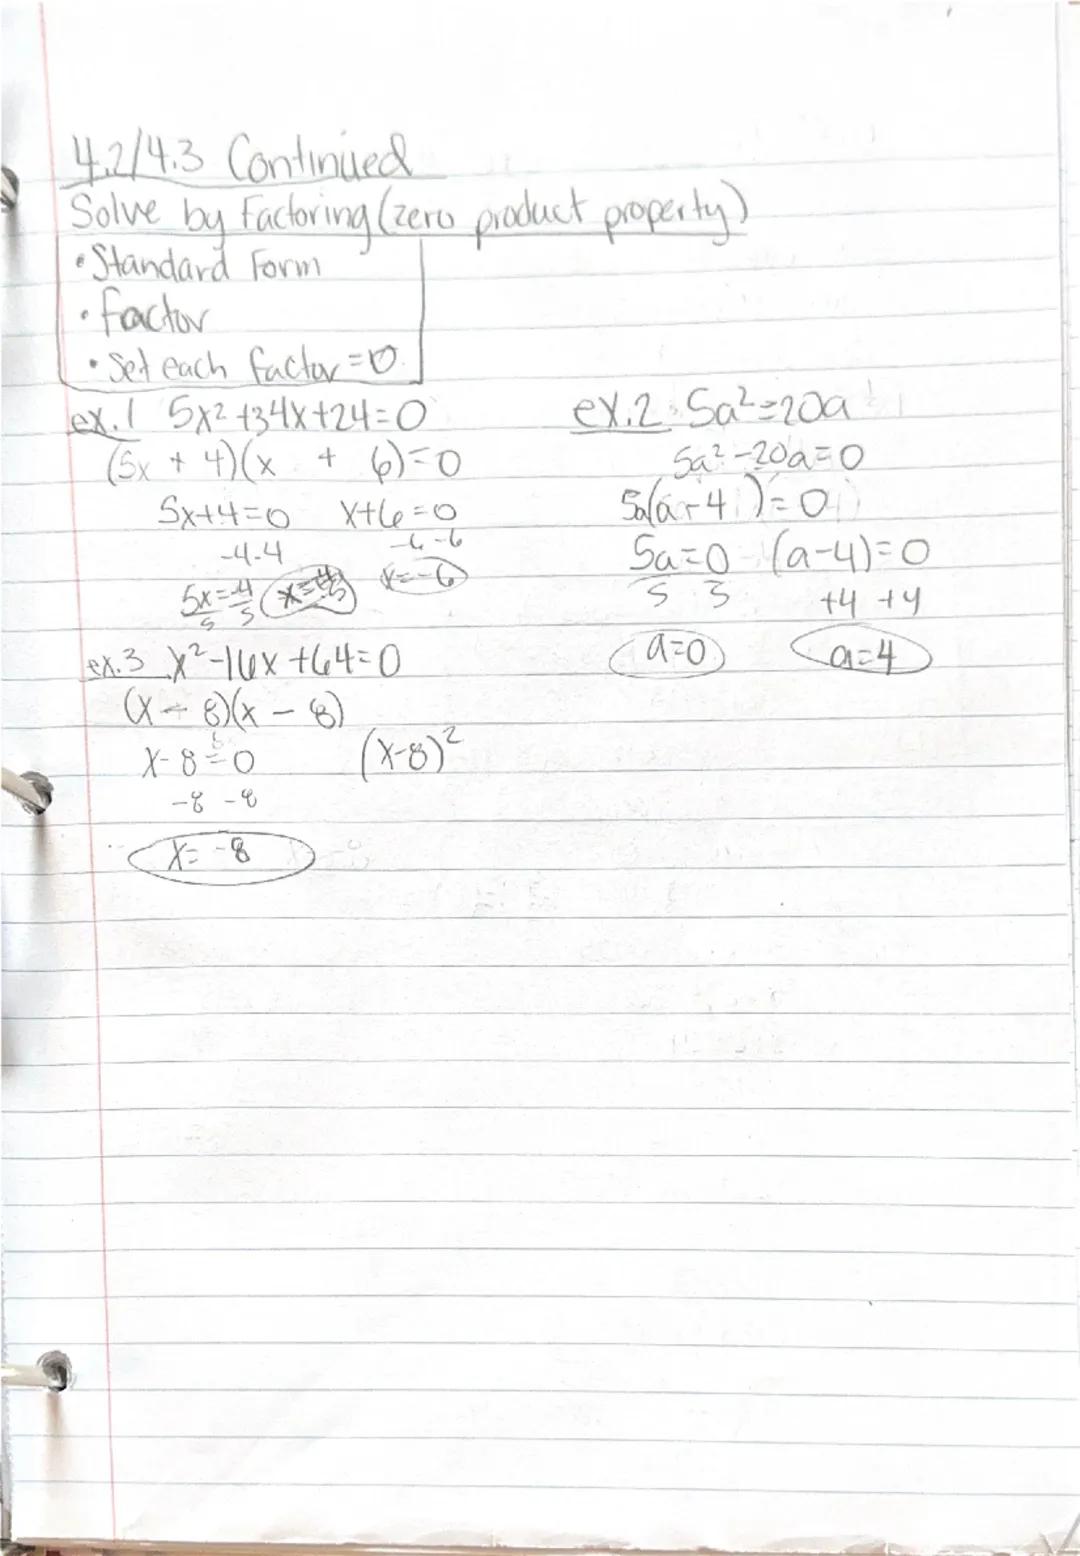 4.2/4.3 Continued
Solve by Factoring (zero product property)
• Standard Form
• factor
• Set each factor = 0
ex.1 5x² +34x+24=0
(5x + 4)(x + 6)=0
5x+4=0 x+6=0
-4-4 -6-6
5x=-4 x=-6
5 5
ex.2 5a²=20a
5a²-20a=0
5a(a-4)=0
5a=0 (a-4)=0
5 5 +4 +4
a=0 a=4
ex.3 x²-16x+64=0
(x-8)(x-8)
x-8=0 (x-8)²
-8 -8
x= -8